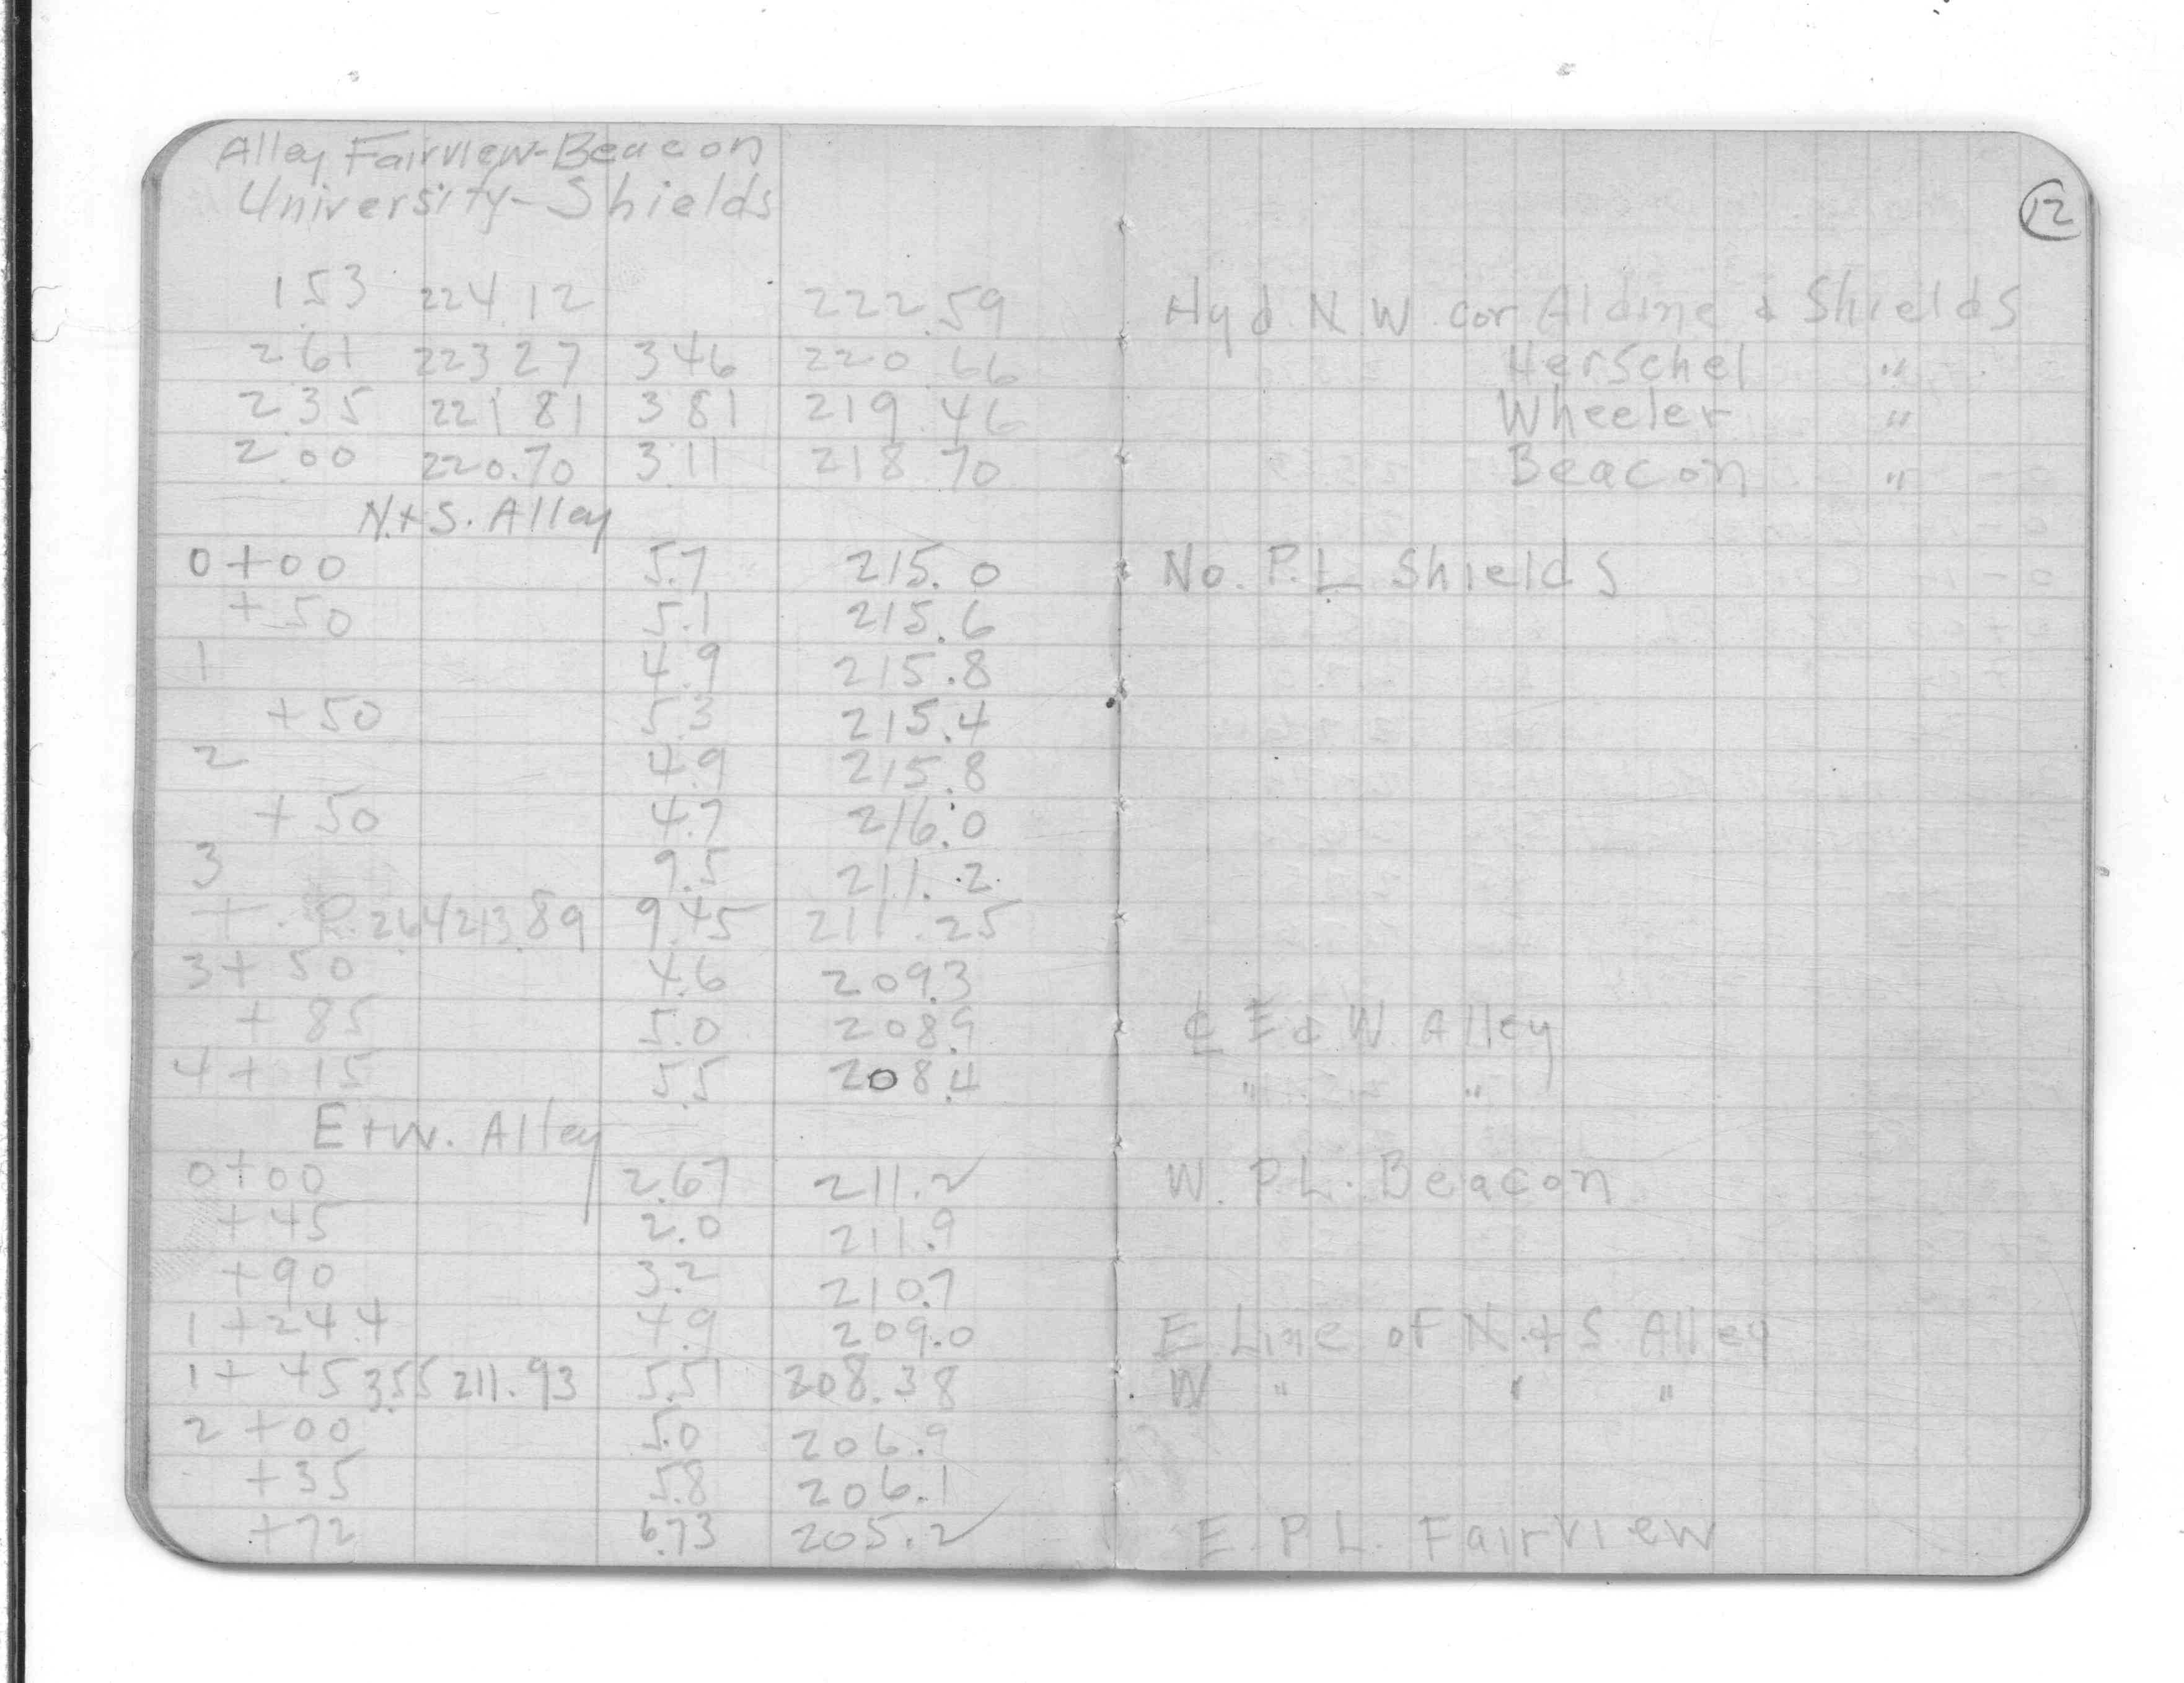 Alley Fairview-Beacon
University-Shields
12
1.53 224.12 222.59 Hyd N W cor Aldine & Shields
2.61 223.27 3.46 220.66 Herschel "
2.35 221.81 3.81 219.46 Wheeler "
2.00 220.70 3.11 218.70 Beacon "
N.+S. Alley
0+00 5.7 215.0 No. P.L Shields
+50 5.1 215.6
1 4.9 215.8
+50 5.3 215.4
2 4.9 215.8
+50 4.7 216.0
3 9.5 211.2
T.P. 2.64 213.89 9.45 211.25
3+50 4.6 209.3
+85 5.0 208.9 ℄ E & W Alley
4+15 5.5 208.4 " "
E+W. Alley
0+00 2.67 211.2✓ W. P.L. Beacon
+45 2.0 211.9
+90 3.2 210.7
1+24.4 4.9 209.0 E Line of N.&S. Alley
1+45 3.55 211.93 5.51 208.38 W " " "
2+00 5.0 206.9
+35 5.8 206.1
+72 6.73 205.2✓ E. P.L. Fairview